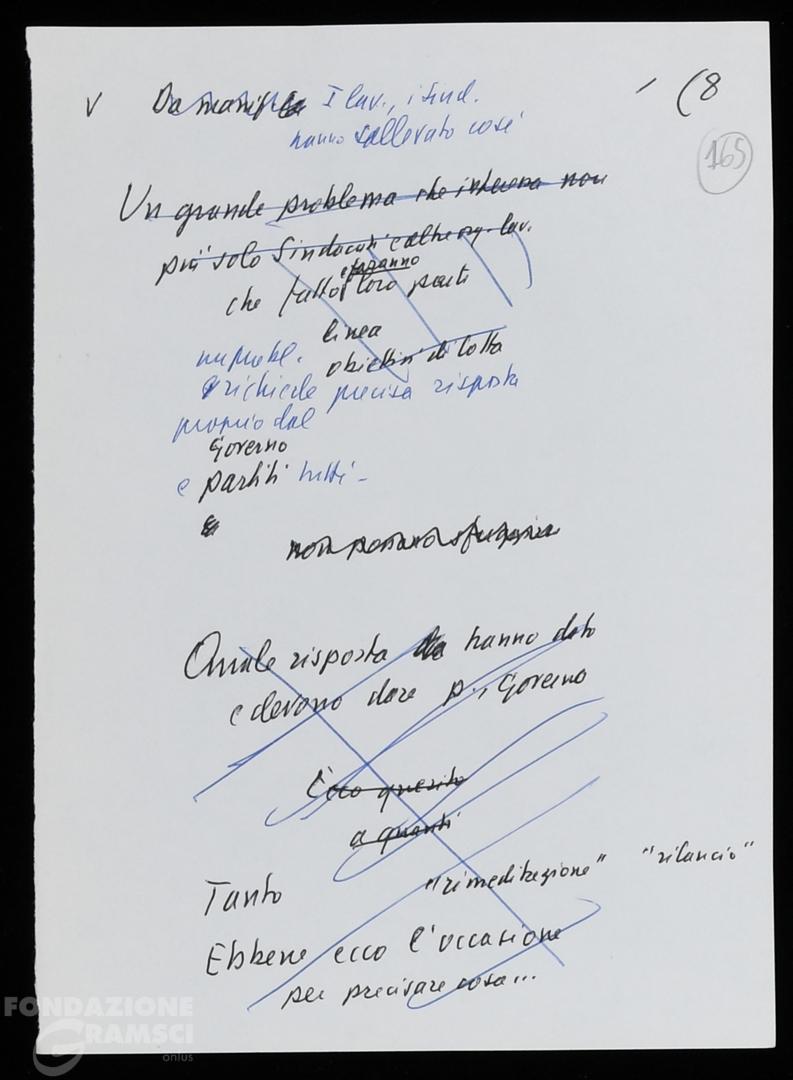 V Da manif I lav., i sind. (8
hanno sollevato così
165
Un grande problema che interessa non
più solo Sindacati e altre org. lav.
faranno
che tutto loro parte
linea
obiettivi di lotta
richiede precisa risposta
proprio dal
Governo
e partiti tutti -
non possono sfuggire
Quale risposta hanno dato
e devono dare p., Governo
Ecco quesito
a quanti
Tanto "rimeditazione" "rilancio"
Ebbene ecco l'occasione
per precisare cosa...
FONDAZIONE
GRAMSCI
onlus